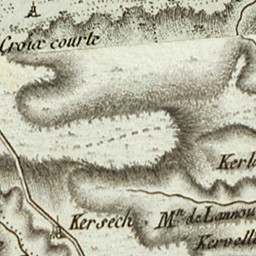 Croix courte
Kersech
M.in de Lannou
Kervell